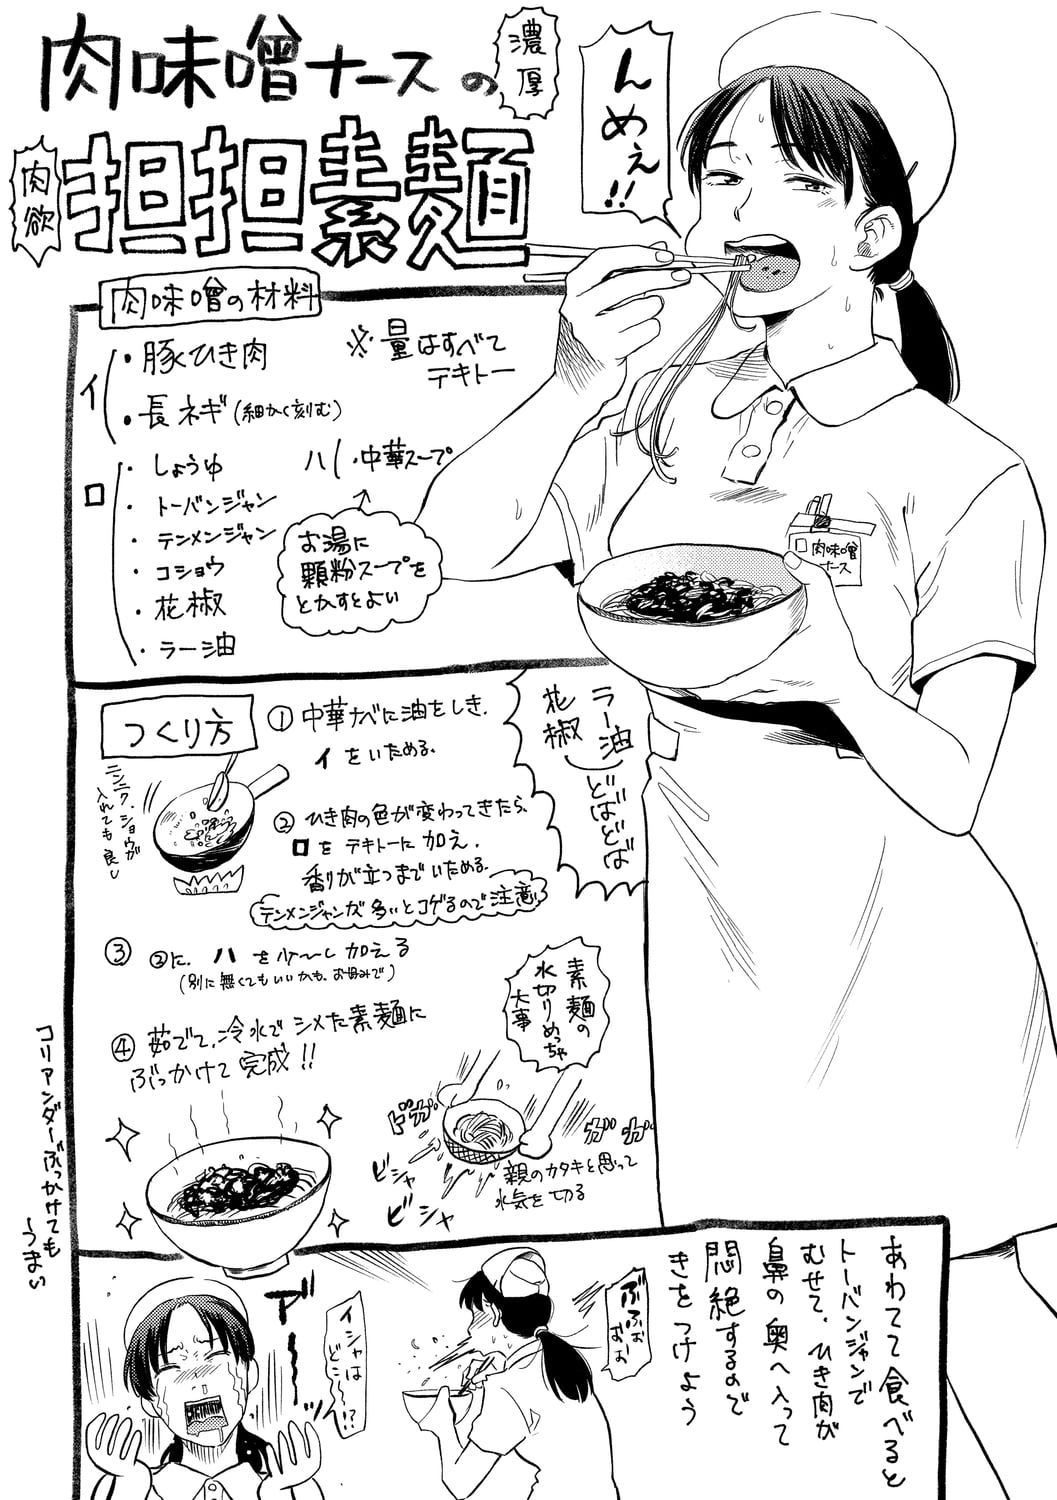 肉味噌ナースの
濃厚
肉欲
担担素麺
んめぇ!!
肉味噌の材料
※量はすべて
テキトー
イ
・豚ひき肉
・長ネギ(細かく刻む)
ロ
・しょうゆ
・トーバンジャン
・テンメンジャン
・コショウ
・花椒
・ラー油
ハ
・中華スープ
お湯に
顆粒スープを
とかすとよい
肉味噌
ナース
つくり方
①中華ナベに油をしき、
イをいためる。
ニンニク、ショウガ
入れても良し
②ひき肉の色が変わってきたら、
ロをテキトーに加え、
香りが立つまでいためる。
テンメンジャンが多いとコゲるので注意
ラー油
花椒
どばどば
③②に、ハを少〜し加える
(別に無くてもいいかも、お好みで)
④茹でて、冷水でシメた素麺に
ぶっかけて完成!!
素麺の
水切りめっちゃ
大事
ドガ
ガガ
ビシャ
ビシャ
親のカタキと思って
水気を切る
コリアンダーぶっかけても
うまい
あわてて食べると
トーバンジャンで
むせて、ひき肉が
鼻の奥へ入って
悶絶するので
きをつけよう
ぶふぉ
ぉぉ
アーーッ
イシャは
どこ〜!?